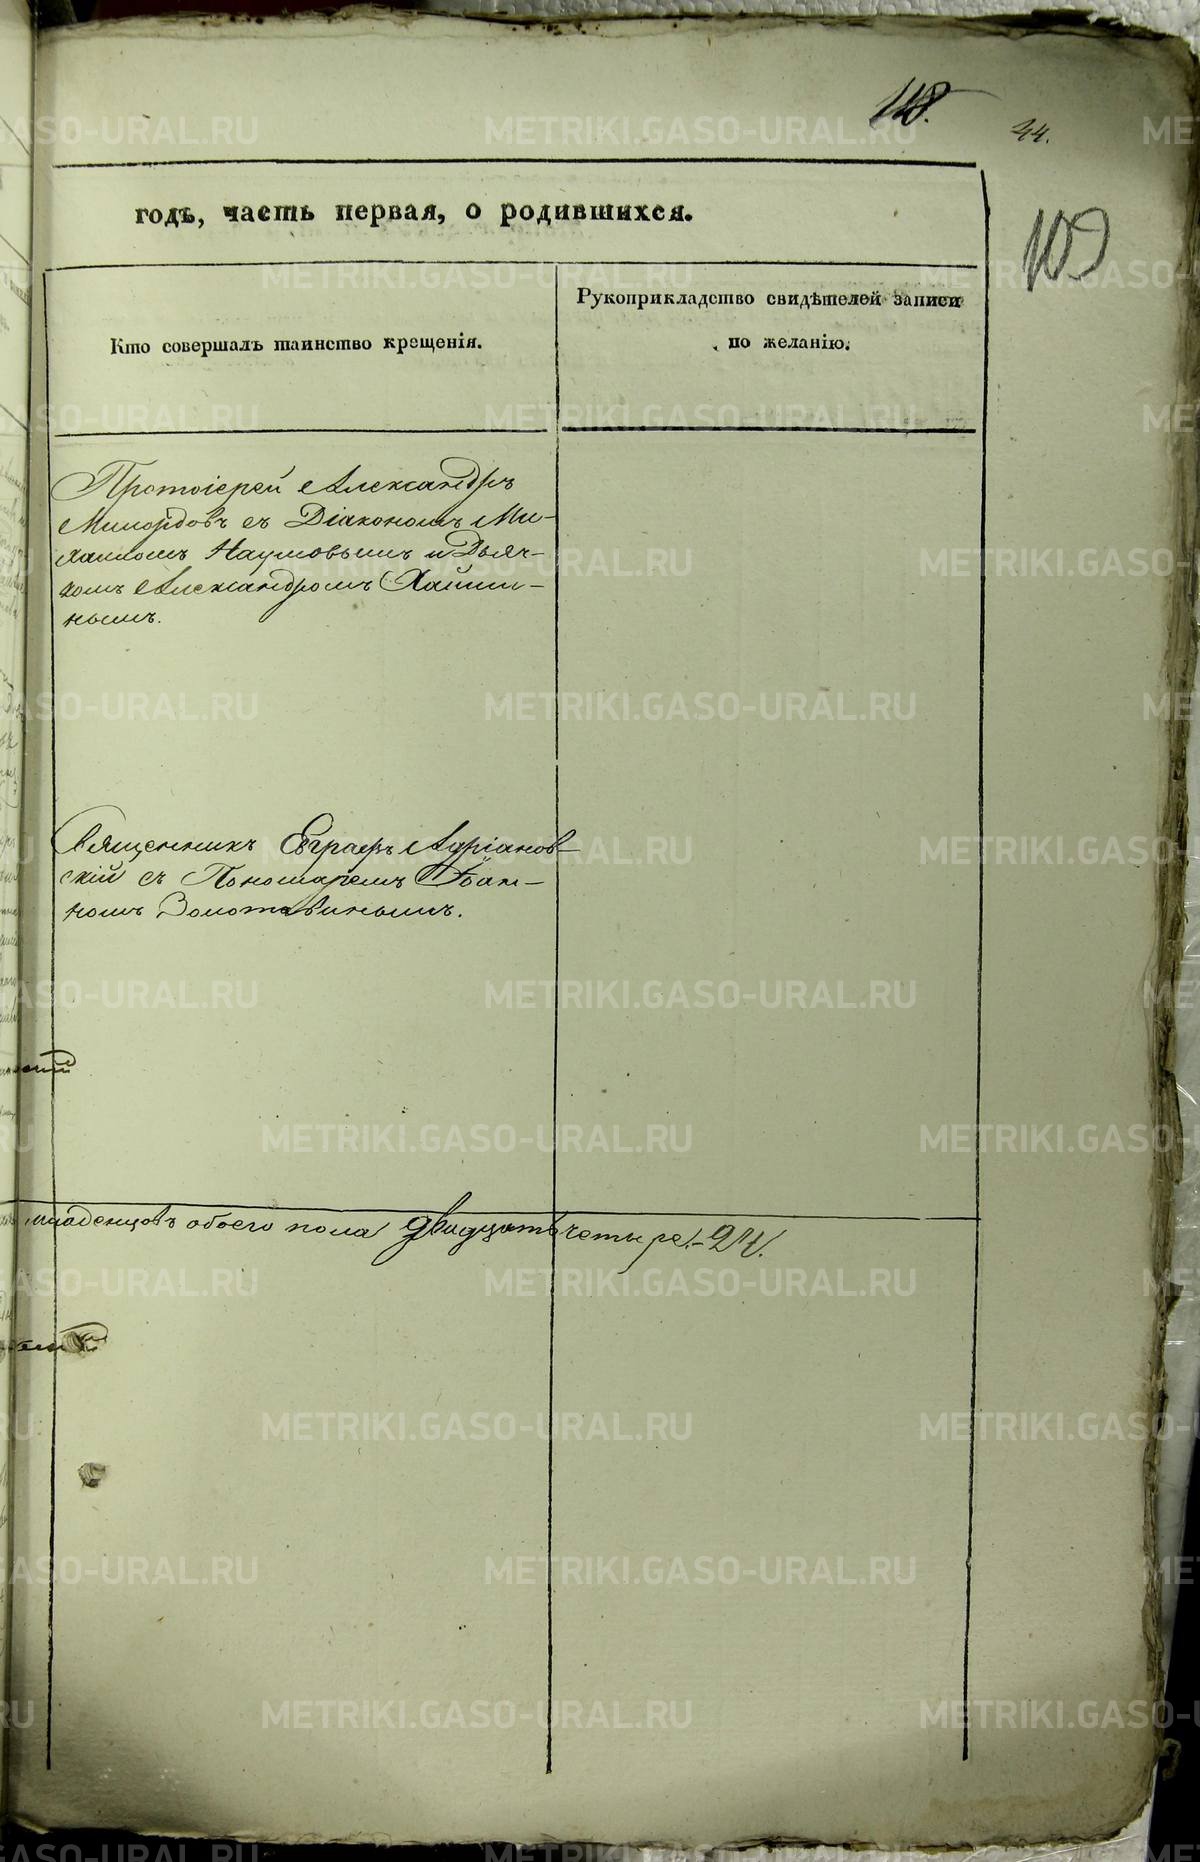 118.
44.
109
годъ, часть первая, о родившихся.
Кто совершалъ таинство крещенія.
Рукоприкладство свидѣтелей записи
по желанію.
Протоіерей Александръ
Милордовъ съ Діакономъ Ми-
хаиломъ Наумовымъ и Дьяч-
комъ Александромъ Хайми-
нымъ.
Священникъ Евграфъ Адріанов-
скій съ Пономаремъ Іоан-
номъ Золотавинымъ.
младенцовъ обоего пола двадцать четыре.- 24.
METRIKI.GASO-URAL.RU